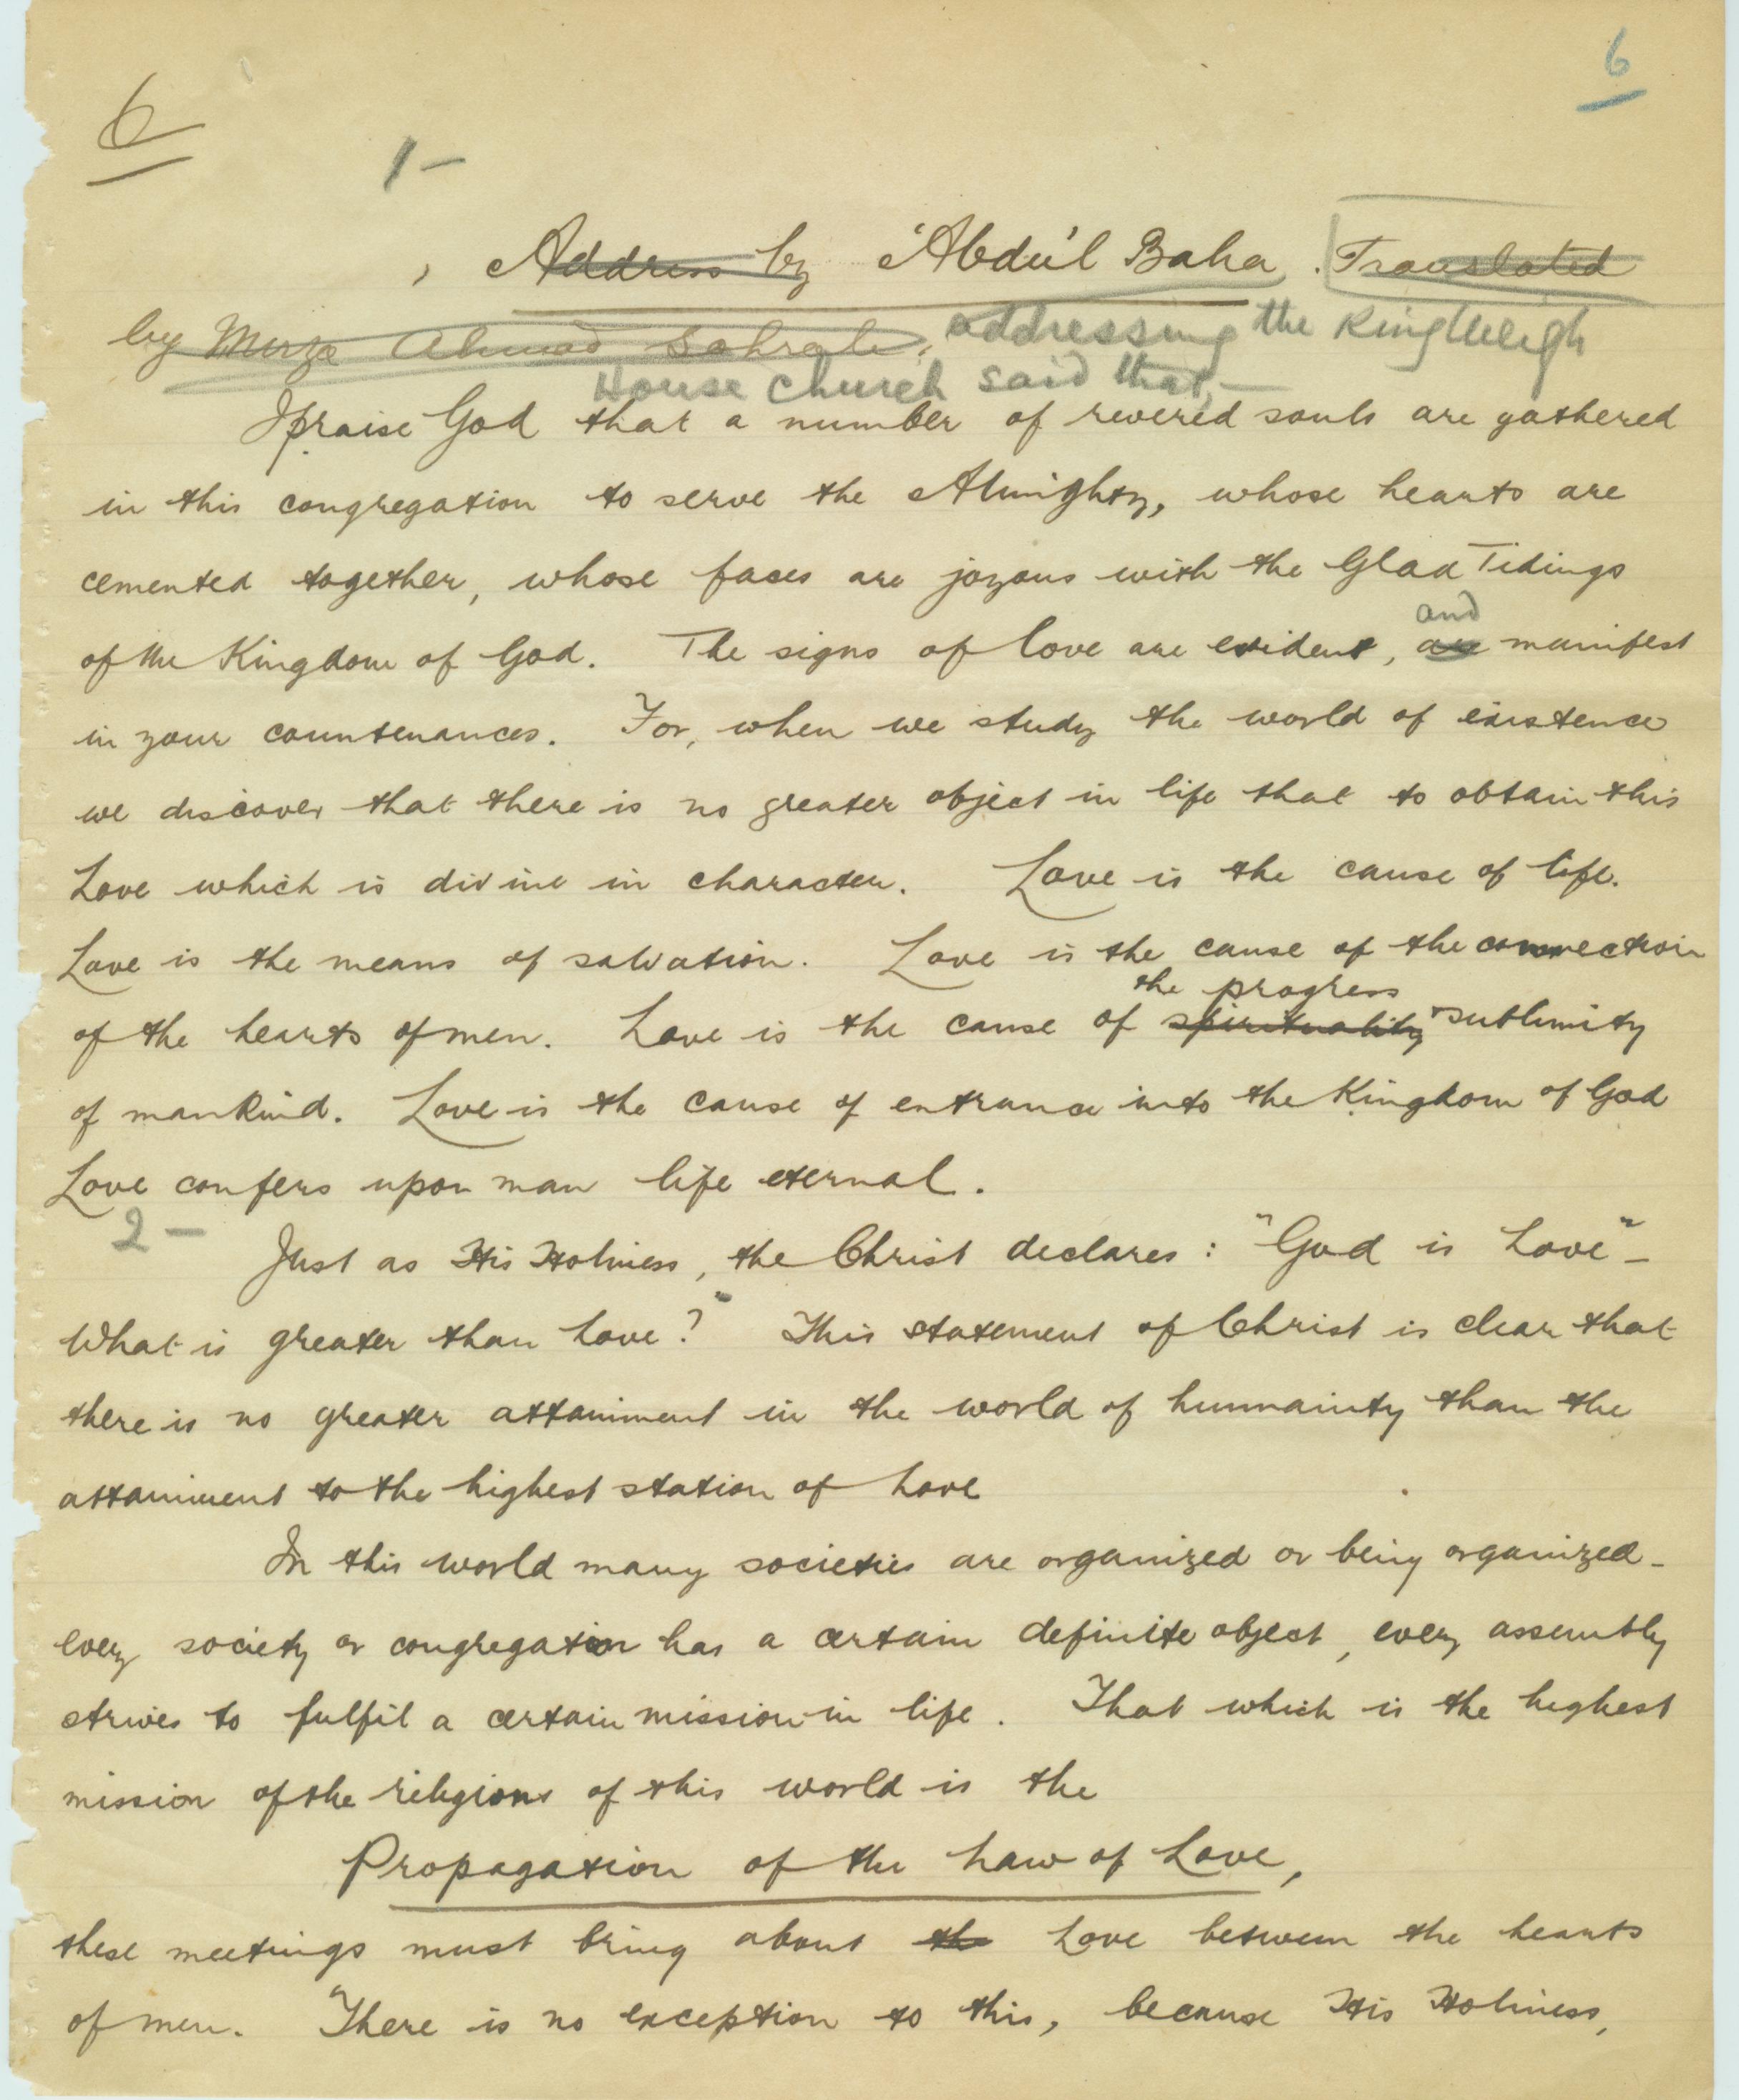 6
6
1 –
, Address by 'Abdu'l Baha. Translated
by Mirza Ahmad Sohrab, addressing the King Weigh
House Church said that, –
I praise God that a number of revered souls are gathered
in this congregation to serve the Almighty, whose hearts are
cemented together, whose faces are joyous with the Glad Tidings
and
of the Kingdom of God. The signs of love are evident, are manifest
in your countenances. For, when we study the world of existence
we discover that there is no greater object in life that to obtain this
Love which is divine in character. Love is the cause of life.
Love is the means of salvation. Love is the cause of the connection
the progress
of the hearts of men. Love is the cause of spirituality & sublimity
of mankind. Love is the cause of entrance into the Kingdom of God
Love confers upon man life eternal.
2 –
Just as His Holiness, the Christ declares: "God is Love" –
What is greater than Love?" This statement of Christ is clear that
there is no greater attainment in the world of humainty than the
attainment to the highest station of Love
In this world many societies are organized or being organized –
every society or congregation has a certain definite object, every assembly
strives to fulfil a certain mission in life. That which is the highest
mission of the religions of this world is the
Propagation of the Law of Love,
these meetings must bring about the Love between the hearts
of men. There is no exception to this, because His Holiness,